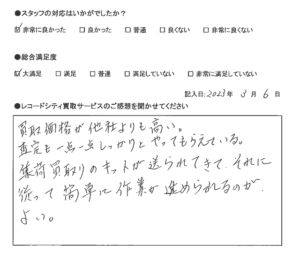 ●スタッフの対応はいかがでしたか？
☑非常に良かった □良かった □普通 □良くない □非常に良くない
●総合満足度
☑大満足 □満足 □普通 □満足していない □非常に満足していない
記入日：2023年 3月 6日
●レコードシティ買取サービスのご感想を聞かせてください
買取価格が他社よりも高い。
査定も一点一点しっかりとやってもらえている。
集荷買取りのキットが送られてきて、それに
従って簡単に作業が進められるのが、
よい。